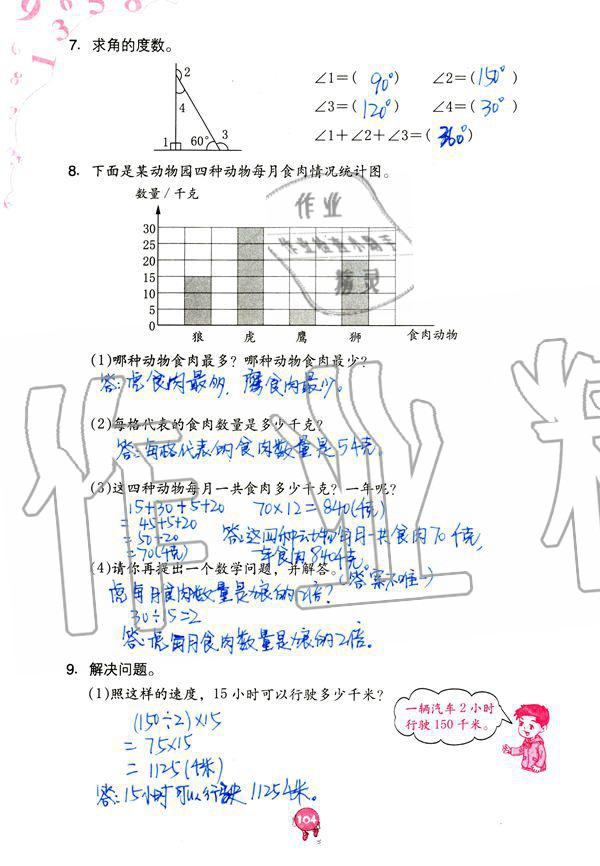 7. 求角的度数。
2
4
1
60°
3
∠1=( 90° ) ∠2=( 150° )
∠3=( 120° ) ∠4=( 30° )
∠1+∠2+∠3=( 360° )
8. 下面是某动物园四种动物每月食肉情况统计图。
数量/千克
30
25
20
15
10
5
0
狼 虎 鹰 狮 食肉动物
作业
精灵
(1)哪种动物食肉最多?哪种动物食肉最少?
答:虎食肉最多,鹰食肉最少。
(2)每格代表的食肉数量是多少千克?
答:每格代表的食肉数量是5千克。
(3)这四种动物每月一共食肉多少千克?一年呢?
15+30+5+20 70×12=840(千克)
=45+5+20
=50+20 答:这四种动物每月一共食肉70千克,
=70(千克) 一年食肉840千克。
(4)请你再提出一个数学问题,并解答。(答案不唯一)
虎每月食肉数量是狼的几倍?
30÷15=2
答:虎每月食肉数量是狼的2倍。
9. 解决问题。
(1)照这样的速度,15小时可以行驶多少千米?
一辆汽车2小时
行驶150千米。
(150÷2)×15
=75×15
=1125(千米)
答:15小时可以行驶1125千米。
104
作业精